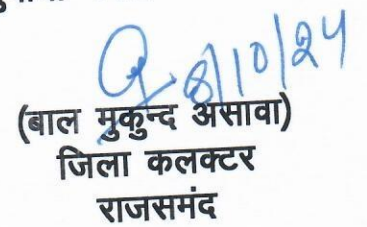 8/10/24
(बाल मुकुन्द असावा)
जिला कलक्टर
राजसमंद